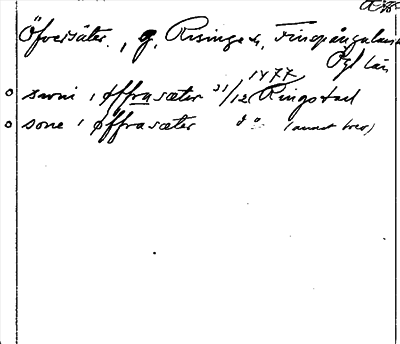 Öfversäter, g, Risinge s., Finspångaläns
Ögl län
1477
o swni i øffrasæter 31/12 Ringstad
o sone i øffrasæter do (annat brev)